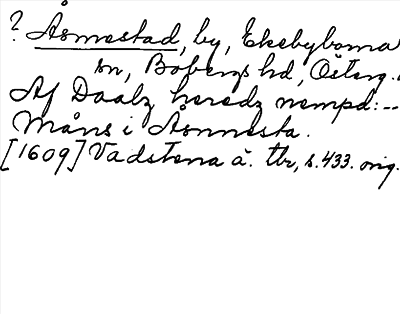 ? Åsmestad, by, Ekebyborna
sn, Bobergs hd, Österg.
Af Daalz heredz nempd: --
Måns i Åsmesta.
[1609] Vadstena ä. tbr, s. 433. orig.